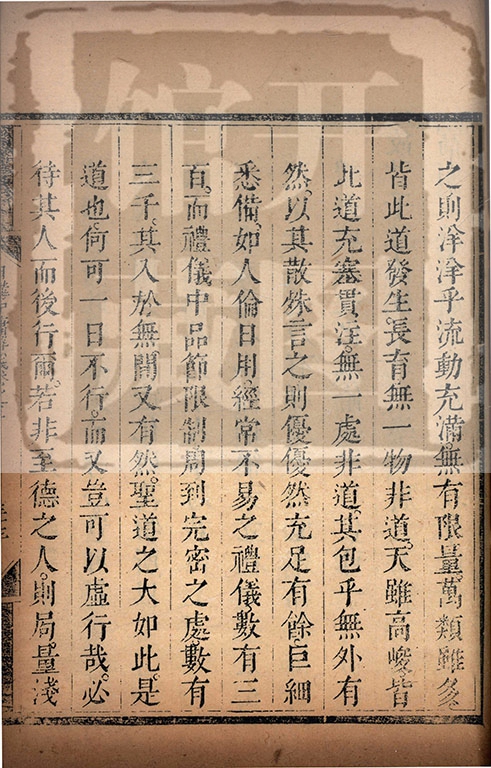 之則洋洋乎流動充滿。無有限量。萬類雖多
皆此道發生。長育無一物非道。天雖高峻。皆
此道充塞貫注。無一處非道。其包乎無外有
然。以其散殊言之則優優然充足有餘。巨細
悉備。如人倫日用。經常不易之禮儀數有三
百。而禮儀中品節限制。周到完密之處數有
三千。其入於無間又有然。聖道之大如此。是
道也。何可一日不行。而又豈可以虛行哉。必
待其人而後行爾。若非至德之人。則局量淺